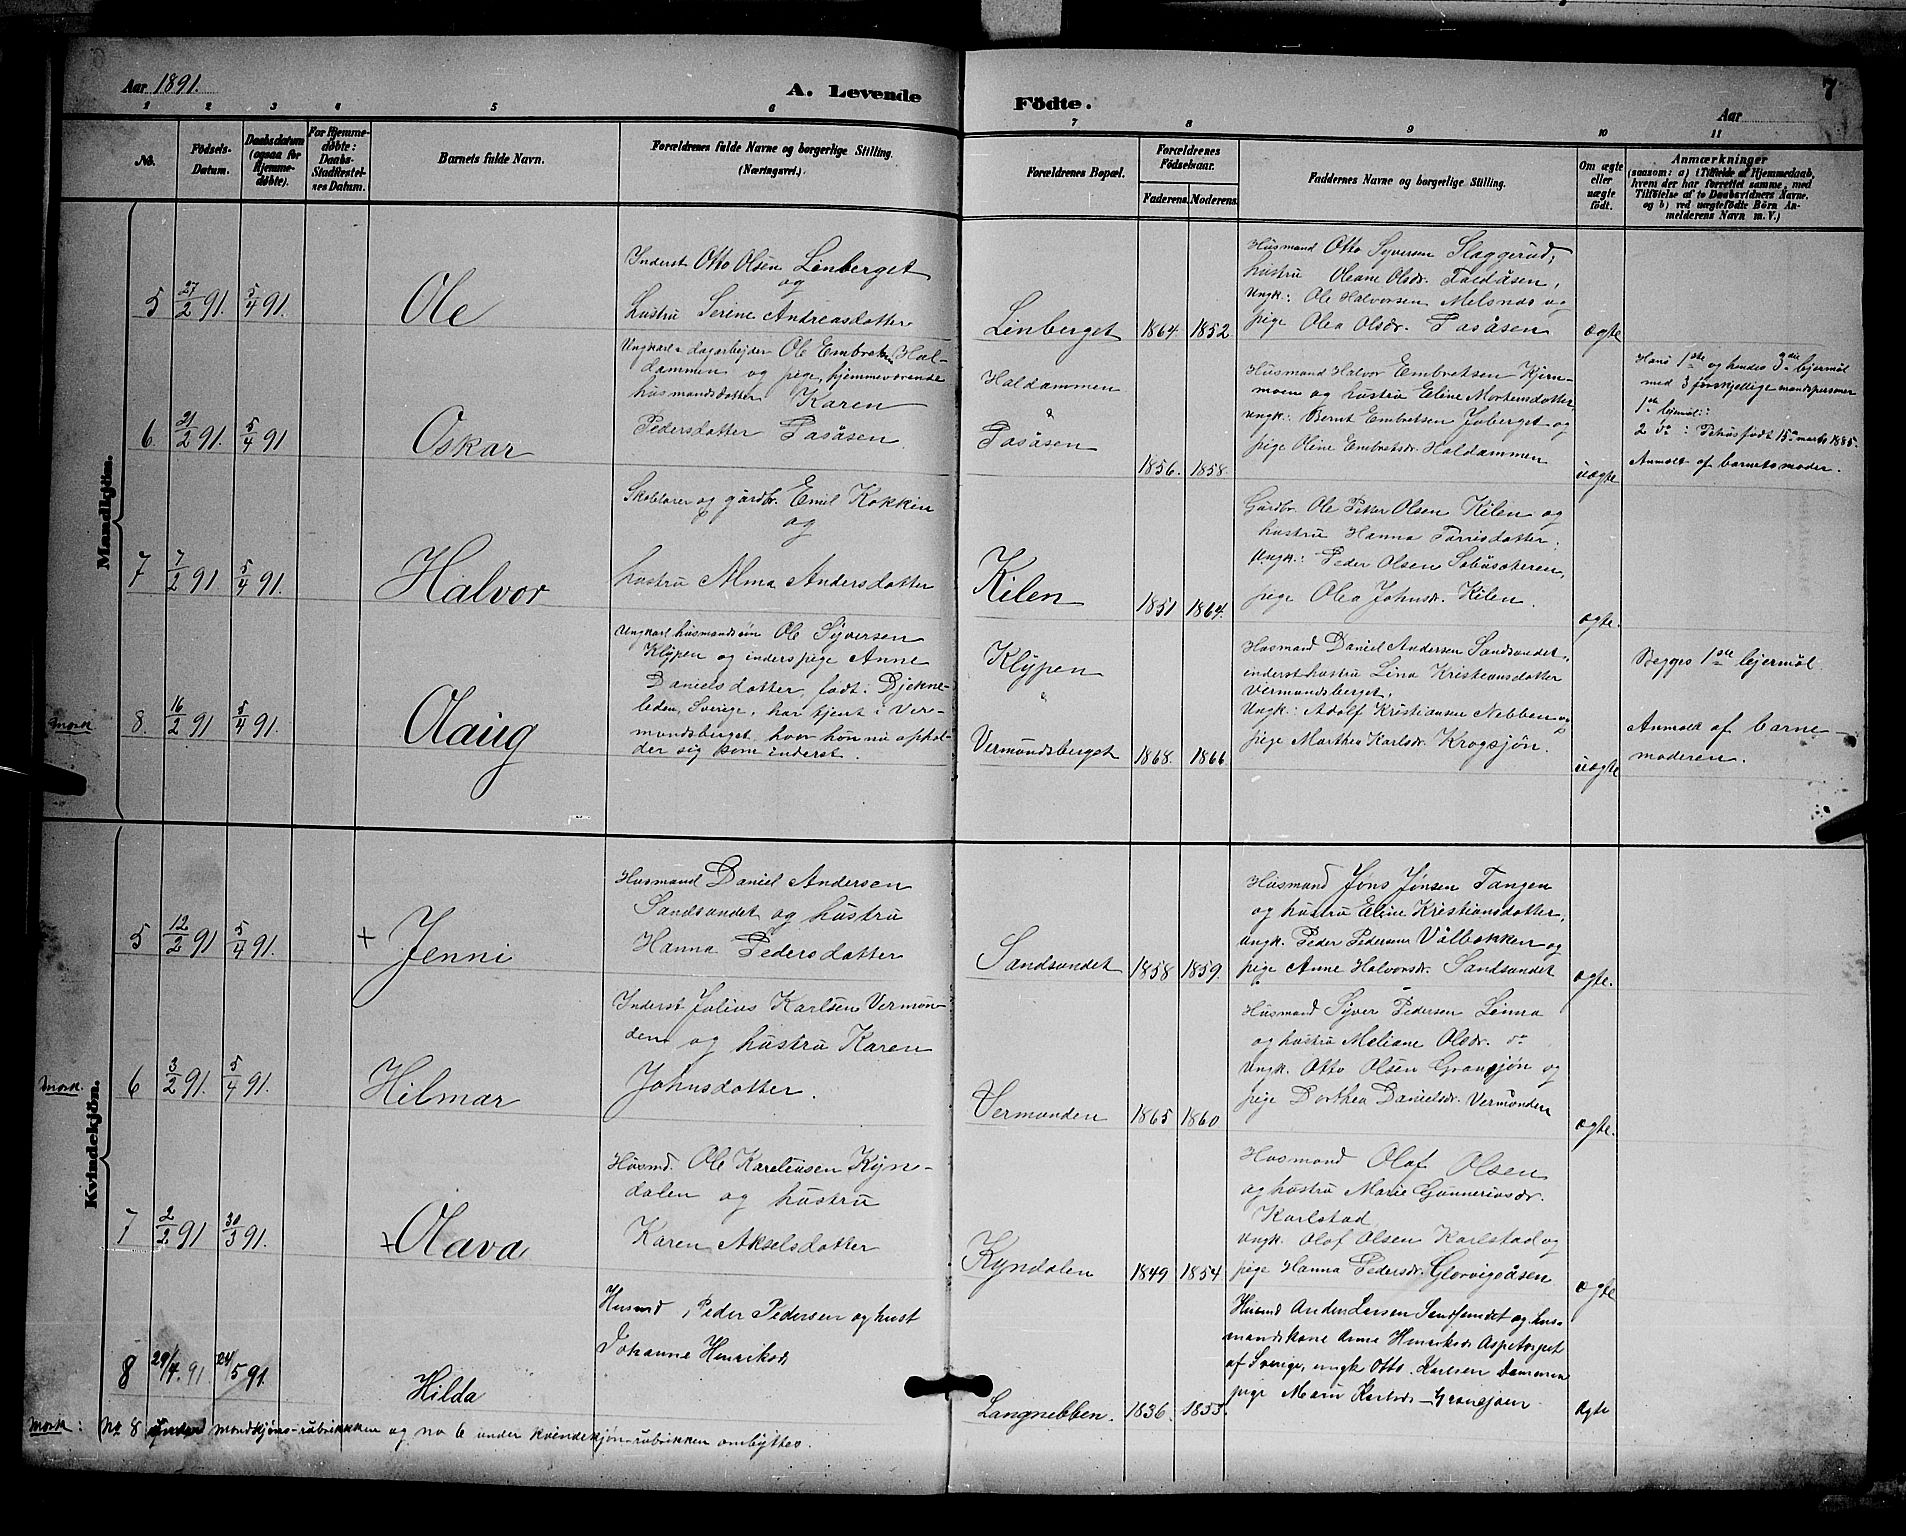 Aar 1891.
A. Levende
Födte.
Aar
7
1 2 3 4 5 6 7 8 9 10 11
No.
Födsels-
Datum.
Daabsdatum
(ogsaa for
Hjemme-
døbte).
For Hjemme-
døbte:
Daabs-
Stadfæstel-
ses Datum.
Barnets fulde Navn.
Forældrenes fulde Navne og borgerlige Stilling.
(Næringsvei.)
Forældrenes Bopæl.
Forældrenes
Födselsaar.
Faderens. Moderens.
Faddernes Navne og borgerlige Stilling.
Om ægte
eller
uægte
født.
Anmærkninger
(saasom: a) i Tilfælde af Hjemmedaab,
hvem der har forrettet samme, med
Tilföielse af to Daabsvidners Navne.
og b) ved uægtefödte Börn An-
melderens Navn m. V.)
Mandkjön.
5 27/2 91. 5/4 91. Ole
Inderst Otto Olsen Linberget
og
hustru Serine Andreasdotter
Linberget 1864. 1852
Husmand Otto Syversen Slaggerud,
hustru Oleane Olsdr. Faldåsen,
Ungk.: Ole Halvorsen Melsnes og
pige Olea Olsdr. Tasåsen
ægte
6. 21/2 91. 5/4 91 Oskar
Ungkarl & dagarbejder Ole Embretsen Hal-
dammen og pige, hjemmeværende
husmandsdotter Karen
Pedersdotter Tasåsen
Haldammen
&
Tasåsen
1856. 1858.
Husmand Halvor Embretsen Kjern-
moen og hustru Eline Mortensdotter,
ungk: Bernt Embretsen Joberget og
pige Oline Embretsdr. Haldammen
uægte
Hans 1ste og hendes 3die lejermål
med 3 forskjellige mandspersoner
1ste lejermål:
2 do : født 15de marts 1885.
Anmeldt af barnets moder.
7 7/2 91. 5/4 91. Halvor
Skolelærer og gårdbr. Emil Kokkin
og
hustru Alma Andersdotter
Kilen 1851 1864.
Gårdbr. Ole Petter Olsen Kilen og
hustru Hanna Tarrisdotter.
Ungk.: Peder Olsen
pige Olea Johnsdr. Kilen.
ægte.
Mærk
8. 16/2 91. 5/4 91. Olaug
Ungkarl husmandssøn Ole Syversen
Klypen og inderspige Anne
Danielsdotter, født i Djekne-
leden, Sverige, har tjent i Ver-
mundsberget, hvor hun nu ophol-
der sig som inderst.
Klypen
"
Vermundsberget 1868. 1866
Husmand Daniel Andersen Sandsundet,
inderst hustru Lina Kristiansdotter
Vermundsberget.
Ungk.: Adolf Kristiansen Nebben og
pige Marthea Karlsdr. Krogsjøn.
uægte
Begges 1ste lejermål.
Anmeldt af barne-
moderen.
Kvindekjön.
5 12/2 91 5/4 91. + Jenni
Husmand Daniel Andersen
Sandsundet og hustru
Hanna Pedersdotter
Sandsundet 1858 1859.
Husmand Jöns Jönsen Tangen
og hustru Eline Kristiansdotter,
ungk. Peder Pedersen Välbakken og
pige Anne Halvorsdr. Sandsundet
ægte.
Mærk.
6 3/2 91. 5/4 91. Hilmar
Inderst Julius Karlsen Vermun-
den og hustru Karen
Johnsdotter.
Vermunden 1865 1860
Husmand Syver Pedersen Linna
og hustru Meliane Olsdr. do
Ungk. Otto Olsen Gransjøn og
pige Dorthea Danielsdr. Vermunden
ægte.
7 2/2 91 30/3 91. + Olava
Husmd. Ole Kareliusen Kyn-
dalen og hustru
Karen Akselsdotter
Kyndalen 1849 1854
Husmand Olof Olsen
og hustru Marie Gunneriusdr.
Karlstad
Ungk. Olof Olsen Karlstad og
pige Hanna Pedersdr. Glorvigsåsen
ægte
8 29/4. 91 24/5 91. Hilda
Husmd, Peder Pedersen og hust
Johanne Henriksd
Langnebben. 1836. 1853.
Husmd Anders Larsen Sandsundet og hus-
mandskone Anne Henriksdr Aspetorpet
af Sverige, ungk Otto Karlsen Dammen
pige Marie Karlsd. Gransjøen
Ægte
Mærk: No 8 under mandkjøns-rubrikken og no 6 under kvindekjøn-rubrikken ombyttes.